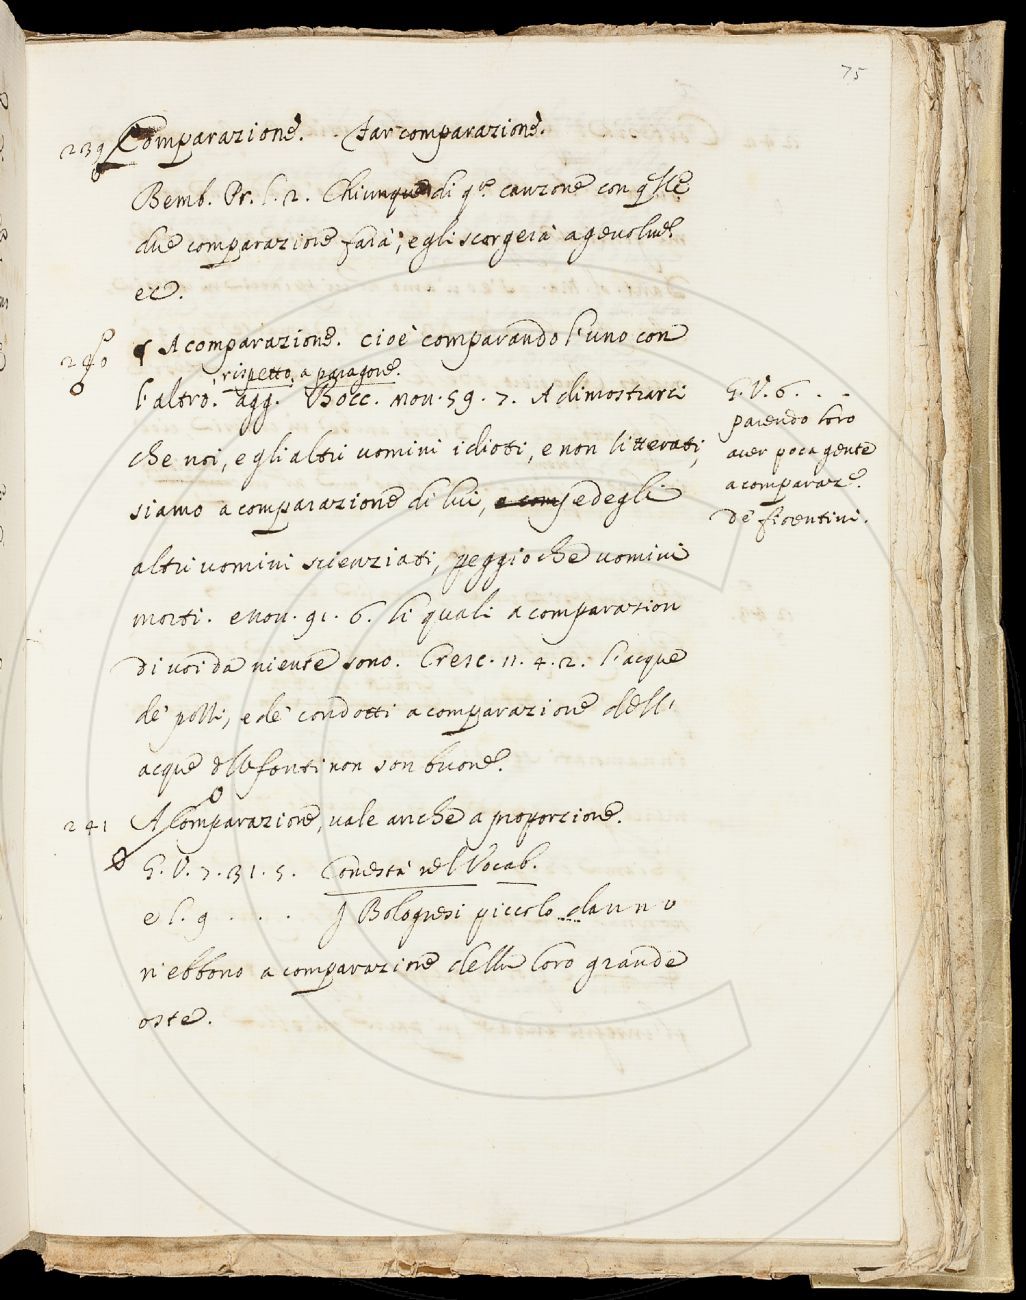 75
239 Comparazione. Far comparazione.
Bemb. Pr. l. 2. Chiunque di q.e canzone con q.lle
due comparazione farà, egli scorgerà agevolm.
ec.
240 A comparazione. cioè comparando l'uno con
, rispetto, a paragone.
l'altro. agg. Bocc. nov. 59. 7. A dimostrarci
che noi, e gli altri uomini idioti, e non litterati,
siamo a comparazione di lui, e com se degli
altri uomini scienziati, peggio che uomini
morti. e nov. 91. 6. li quali a comparazion
di voi da niente sono. Cresc. 11. 4. 2. l'acque
de' polli, e de' condotti a comparazione dell'
acque delle fonti non son buone.
G. V. 6. . .
parendo loro
aver poca gente
a comparaz.e
de' fiorentini.
241 A Comparazione, vale anche a proporzione.
G. V. 7. 31. 5. Con està nel Vocab.
e l. 9 . . . J Bolognesi piccolo danno
n'ebbono a comparazione della loro grande
oste.